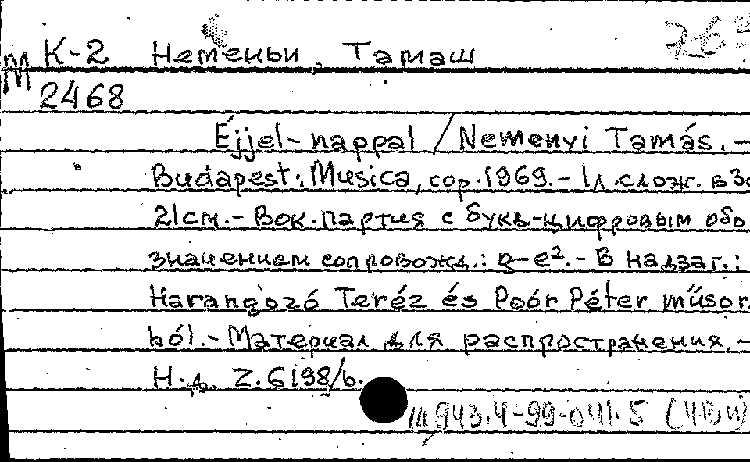 М К-2 Неменьи, Тамаш
2468
Éjjel-nappal / Nemenyi Tamás. –
Budapest: Musica, cop. 1969. – 1 л. слож. в 3
21 см. – Вок. партия с букв.-цифровым обо
значением сопровожд.: g–e². – В надзаг.:
Harangozó Teréz és Poór Péter műsor
ból. – Материал для распространения. –
Н.д. Z. 6198/b.
943.4-99-041.5